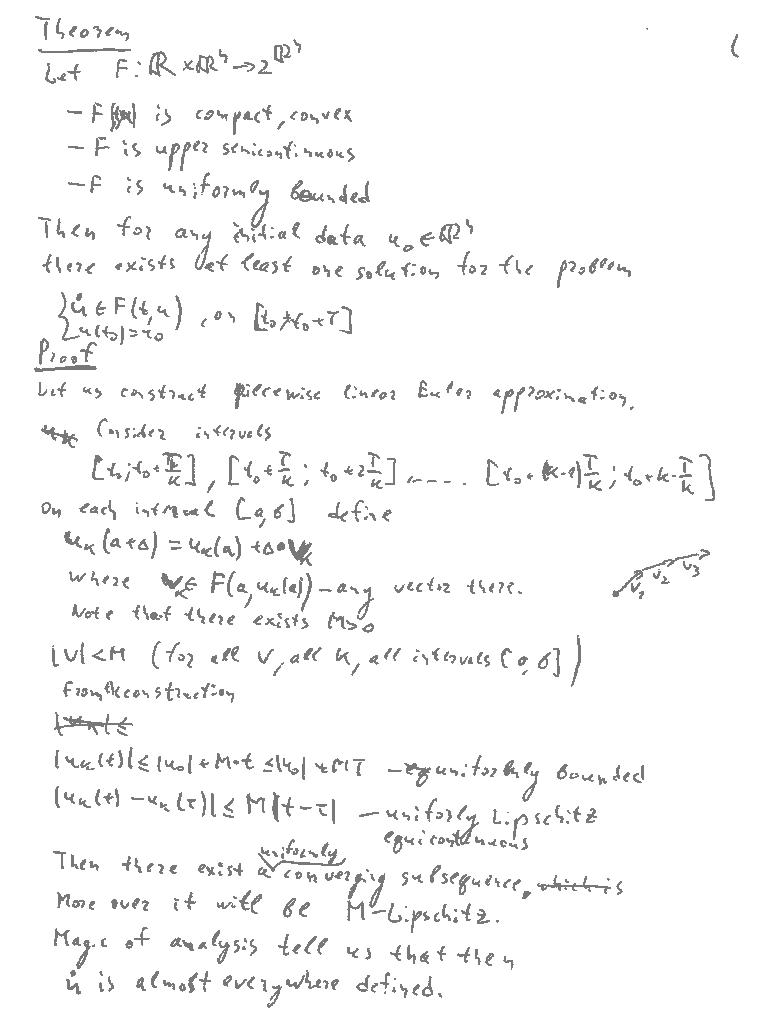 Theorem
Let F: ℝ × ℝⁿ → 2^ℝⁿ
- F is compact, convex
- F is upper semicontinuous
- F is uniformly bounded
Then for any initial data u₀ ∈ ℝⁿ
there exists at least one solution for the problem
{ u̇ ∈ F(t,u), on [t₀, t₀+T]
{ u(t₀)=u₀
Proof
Let us construct piecewise linear Euler approximation.
Consider intervals
[t₀; t₀+T/k], [t₀+T/k; t₀+2T/k] ..... [t₀+(k-1)T/k; t₀+k·T/k]
On each interval [a,b] define
u_k(a+Δ) = u_k(a) + Δ·V_k
where V_k ∈ F(a, u_k(a)) - any vector there.
V₁ V₂ V₃
Note that there exists M>0
|V|<M (for all V, all k, all intervals [a,b])
From the construction
|u_k(t)| ≤ |u₀| + M·t ≤ |u₀| + MT - uniformly bounded
|u_k(t) - u_k(τ)| ≤ M|t-τ| - uniforly Lipschitz
equicontinuous
Then there exist a uniformly converging subsequence.
More over it will be M-Lipschitz.
Magic of analysis tell us that then
u̇ is almost everywhere defined.